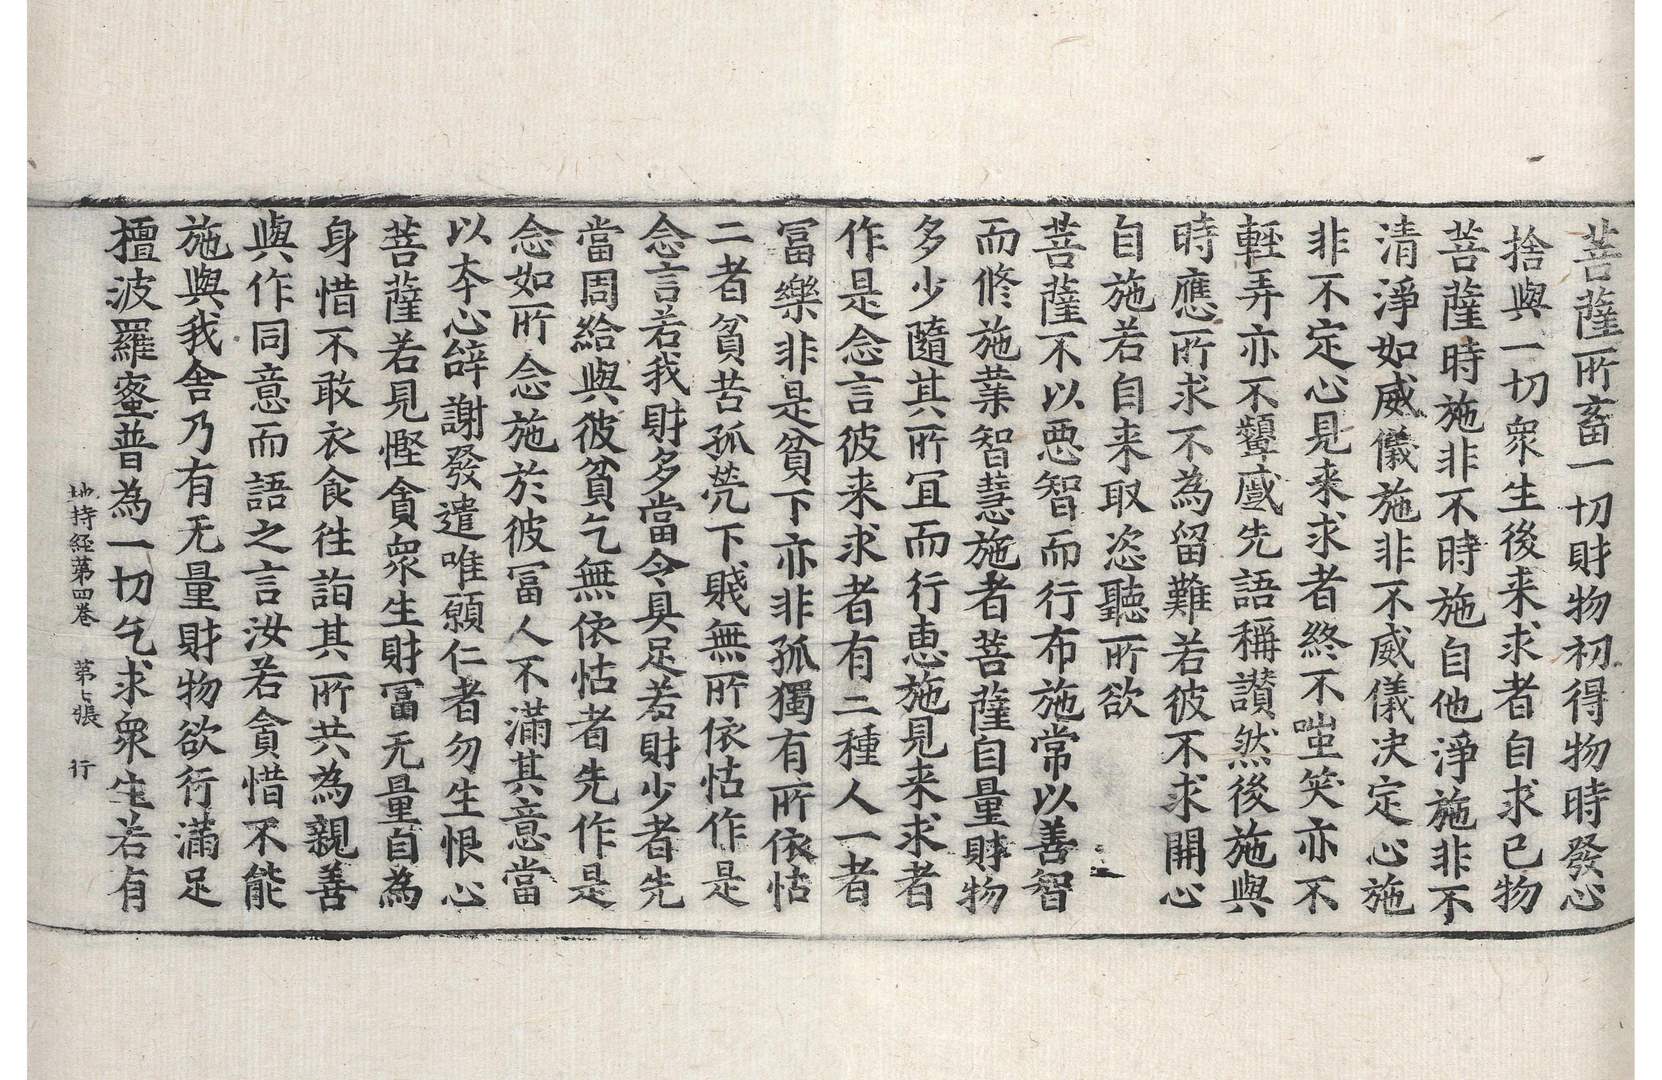 菩薩所畜一切財物初得物時發心
捨與一切衆生後来求者自求已物
菩薩時施非不時施自他淨施非不
清淨如威儀施非不威儀決定心施
非不定心見来求者終不嗤笑亦不
輕弄亦不顰蹙先語稱讃然後施與
時應所求不為留難若彼不求開心
自施若自来取恣聽所欲
菩薩不以惡智而行布施常以善智
而修施業智慧施者菩薩自量財物
多少隨其所冝而行恵施見来求者
作是念言彼来求者有二種人一者
冨樂非是貧下亦非孤獨有所依怙
二者貧苦孤煢下賤無所依怙作是
念言若我財多當令具足若財少者先
當周給與彼貧乞無依怙者先作是
念如所念施於彼冨人不滿其意當
以夲心辤謝發遣唯願仁者勿生恨心
菩薩若見慳貪衆生財冨无量自為
身惜不敢衣食往詣其所共為親善
與作同意而語之言汝若貪惜不能
施與我舍乃有无量財物欲行滿足
擅波羅蜜普為一切乞求衆生若有
地持経苐四巻 苐七張 行